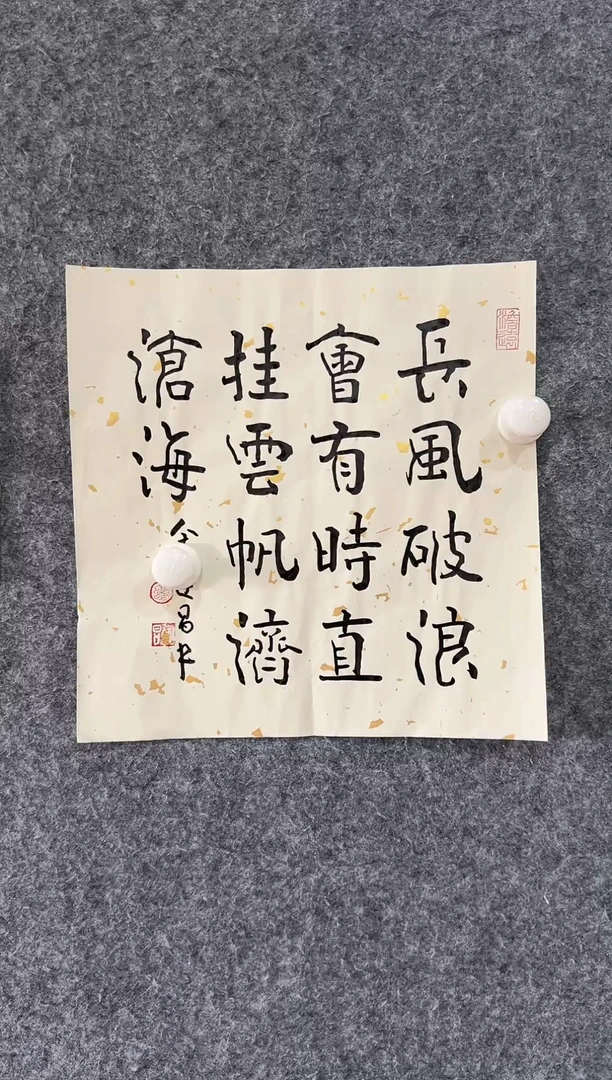 長風破浪
會有時直
挂雲帆濟
滄海
昌